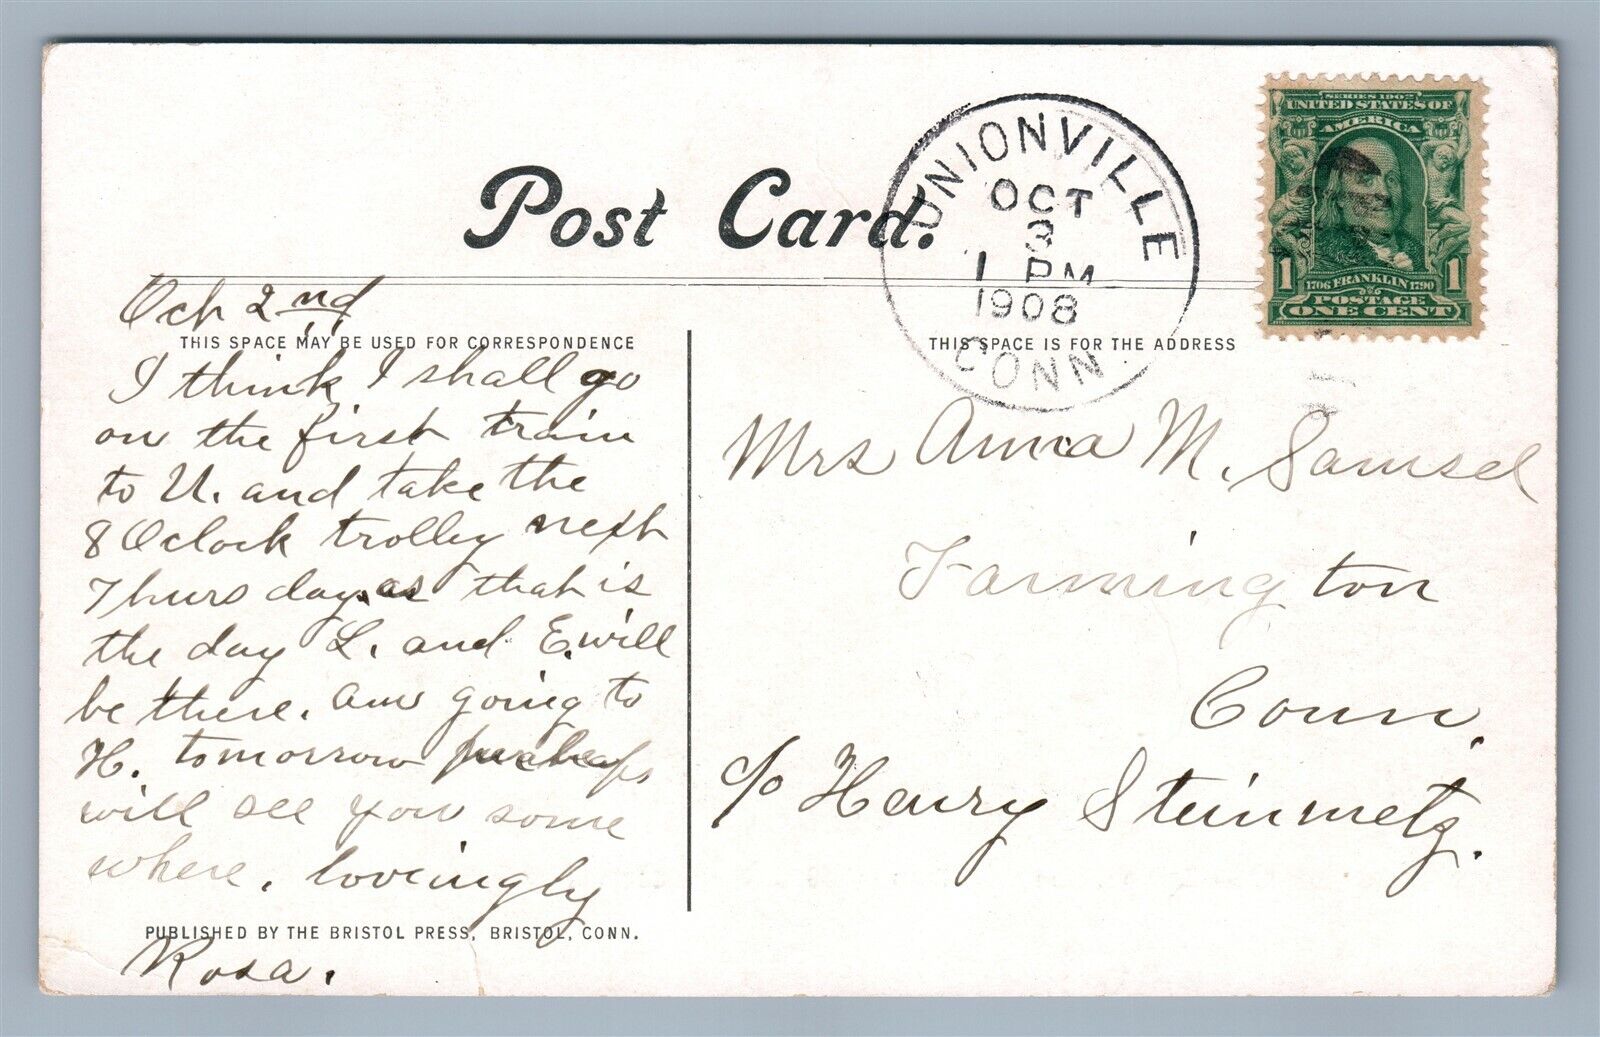 Post Card.
UNIONVILLE
OCT
3
1 PM
1908
CONN.
SERIES 1902
UNITED STATES OF
AMERICA
1706 FRANKLIN 1790
1 1
POSTAGE
ONE CENT
Oct 2nd
THIS SPACE MAY BE USED FOR CORRESPONDENCE
I think I shall go
on the first train
to U. and take the
8 Oclock trolley next
Thursday, as that is
the day L. and E. will
be there. am going to
H. tomorrow perhaps
will see you some
where, lovingly
PUBLISHED BY THE BRISTOL PRESS, BRISTOL, CONN.
Rosa.
THIS SPACE IS FOR THE ADDRESS
Mrs Anna M. Samsel
Farmington
Conn.
c/o Henry Steinmetz.